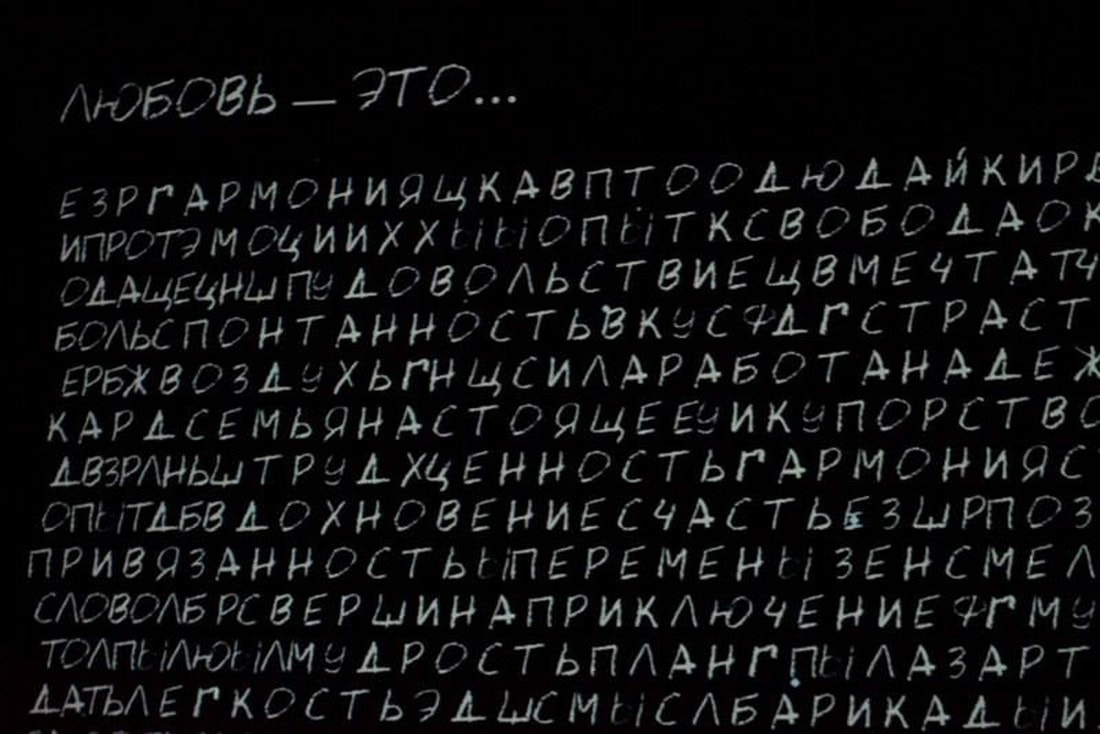 ЛЮБОВЬ — ЭТО...
ЕЗРГАРМОНИЯЩКАВПТООДЮДАЙКИРА
ИПРОТЭМОЦИИХХЫЫОПЫТКСВОБОДАОК
ОДАЩЕЦНШПУДОВОЛЬСТВИЕЩВМЕЧТАТЧ
БОЛЬСПОНТАННОСТЬВКУСФДГСТРАСТ
ЕРБЖВОЗДУХЬГНЩСИЛАРАБОТАНАДЕЖ
КАРДСЕМЬЯНАСТОЯЩЕЕУИКУПОРСТВО
ДВЗРЛНЬШТРУДХЦЕННОСТЬГАРМОНИЯС
ОПЫТДБВДОХНОВЕНИЕСЧАСТЬЕЗШРПОЗ
ПРИВЯЗАННОСТЬЫПЕРЕМЕНЫЗЕНСМЕЛ
СЛОВОЛБРСВЕРШИНАПРИКЛЮЧЕНИЕФГМУ
ТОЛПЫЛЮЫЛМУДРОСТЬПЛАНГПЫЛАЗАРТ
ДАТЬЛЕГКОСТЬЭДШСМЫСЛБАРИКАДЫИ